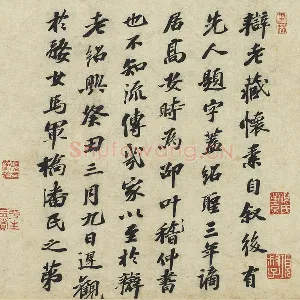 辯老藏懷素自叙後有
先人題字蓋紹聖三年謫
居髙安時為邵叶稽仲書
也不知流傳幾家以至於辯
老紹興癸丑三月九日遲觀
於婺女馬軍橋潘氏之第